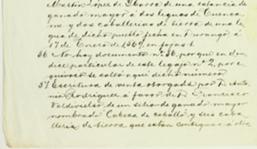 Martin Lopez de Ibarra de una estancia de
ganado mayor á dos leguas de Cuencamé
y dos caballerias de tierra de una le
gua de dicho pueblo fecha en Durango á
17 de Enero de 1609, en fojas 1
56. No hay documento nº 56, porque en don
de el particular de este legajo nº 2, por e
quivoco se saltó aqui dicho número.
57. Escritura de venta otorgada por Dª Anto
nia Rodriguez á favor de Dⁿ Francisco
Valdivielso de un sitio de ganado mayor
nombrado Cabeza de Caballo, y seis caba
llerias de tierra que estan contiguas a otro